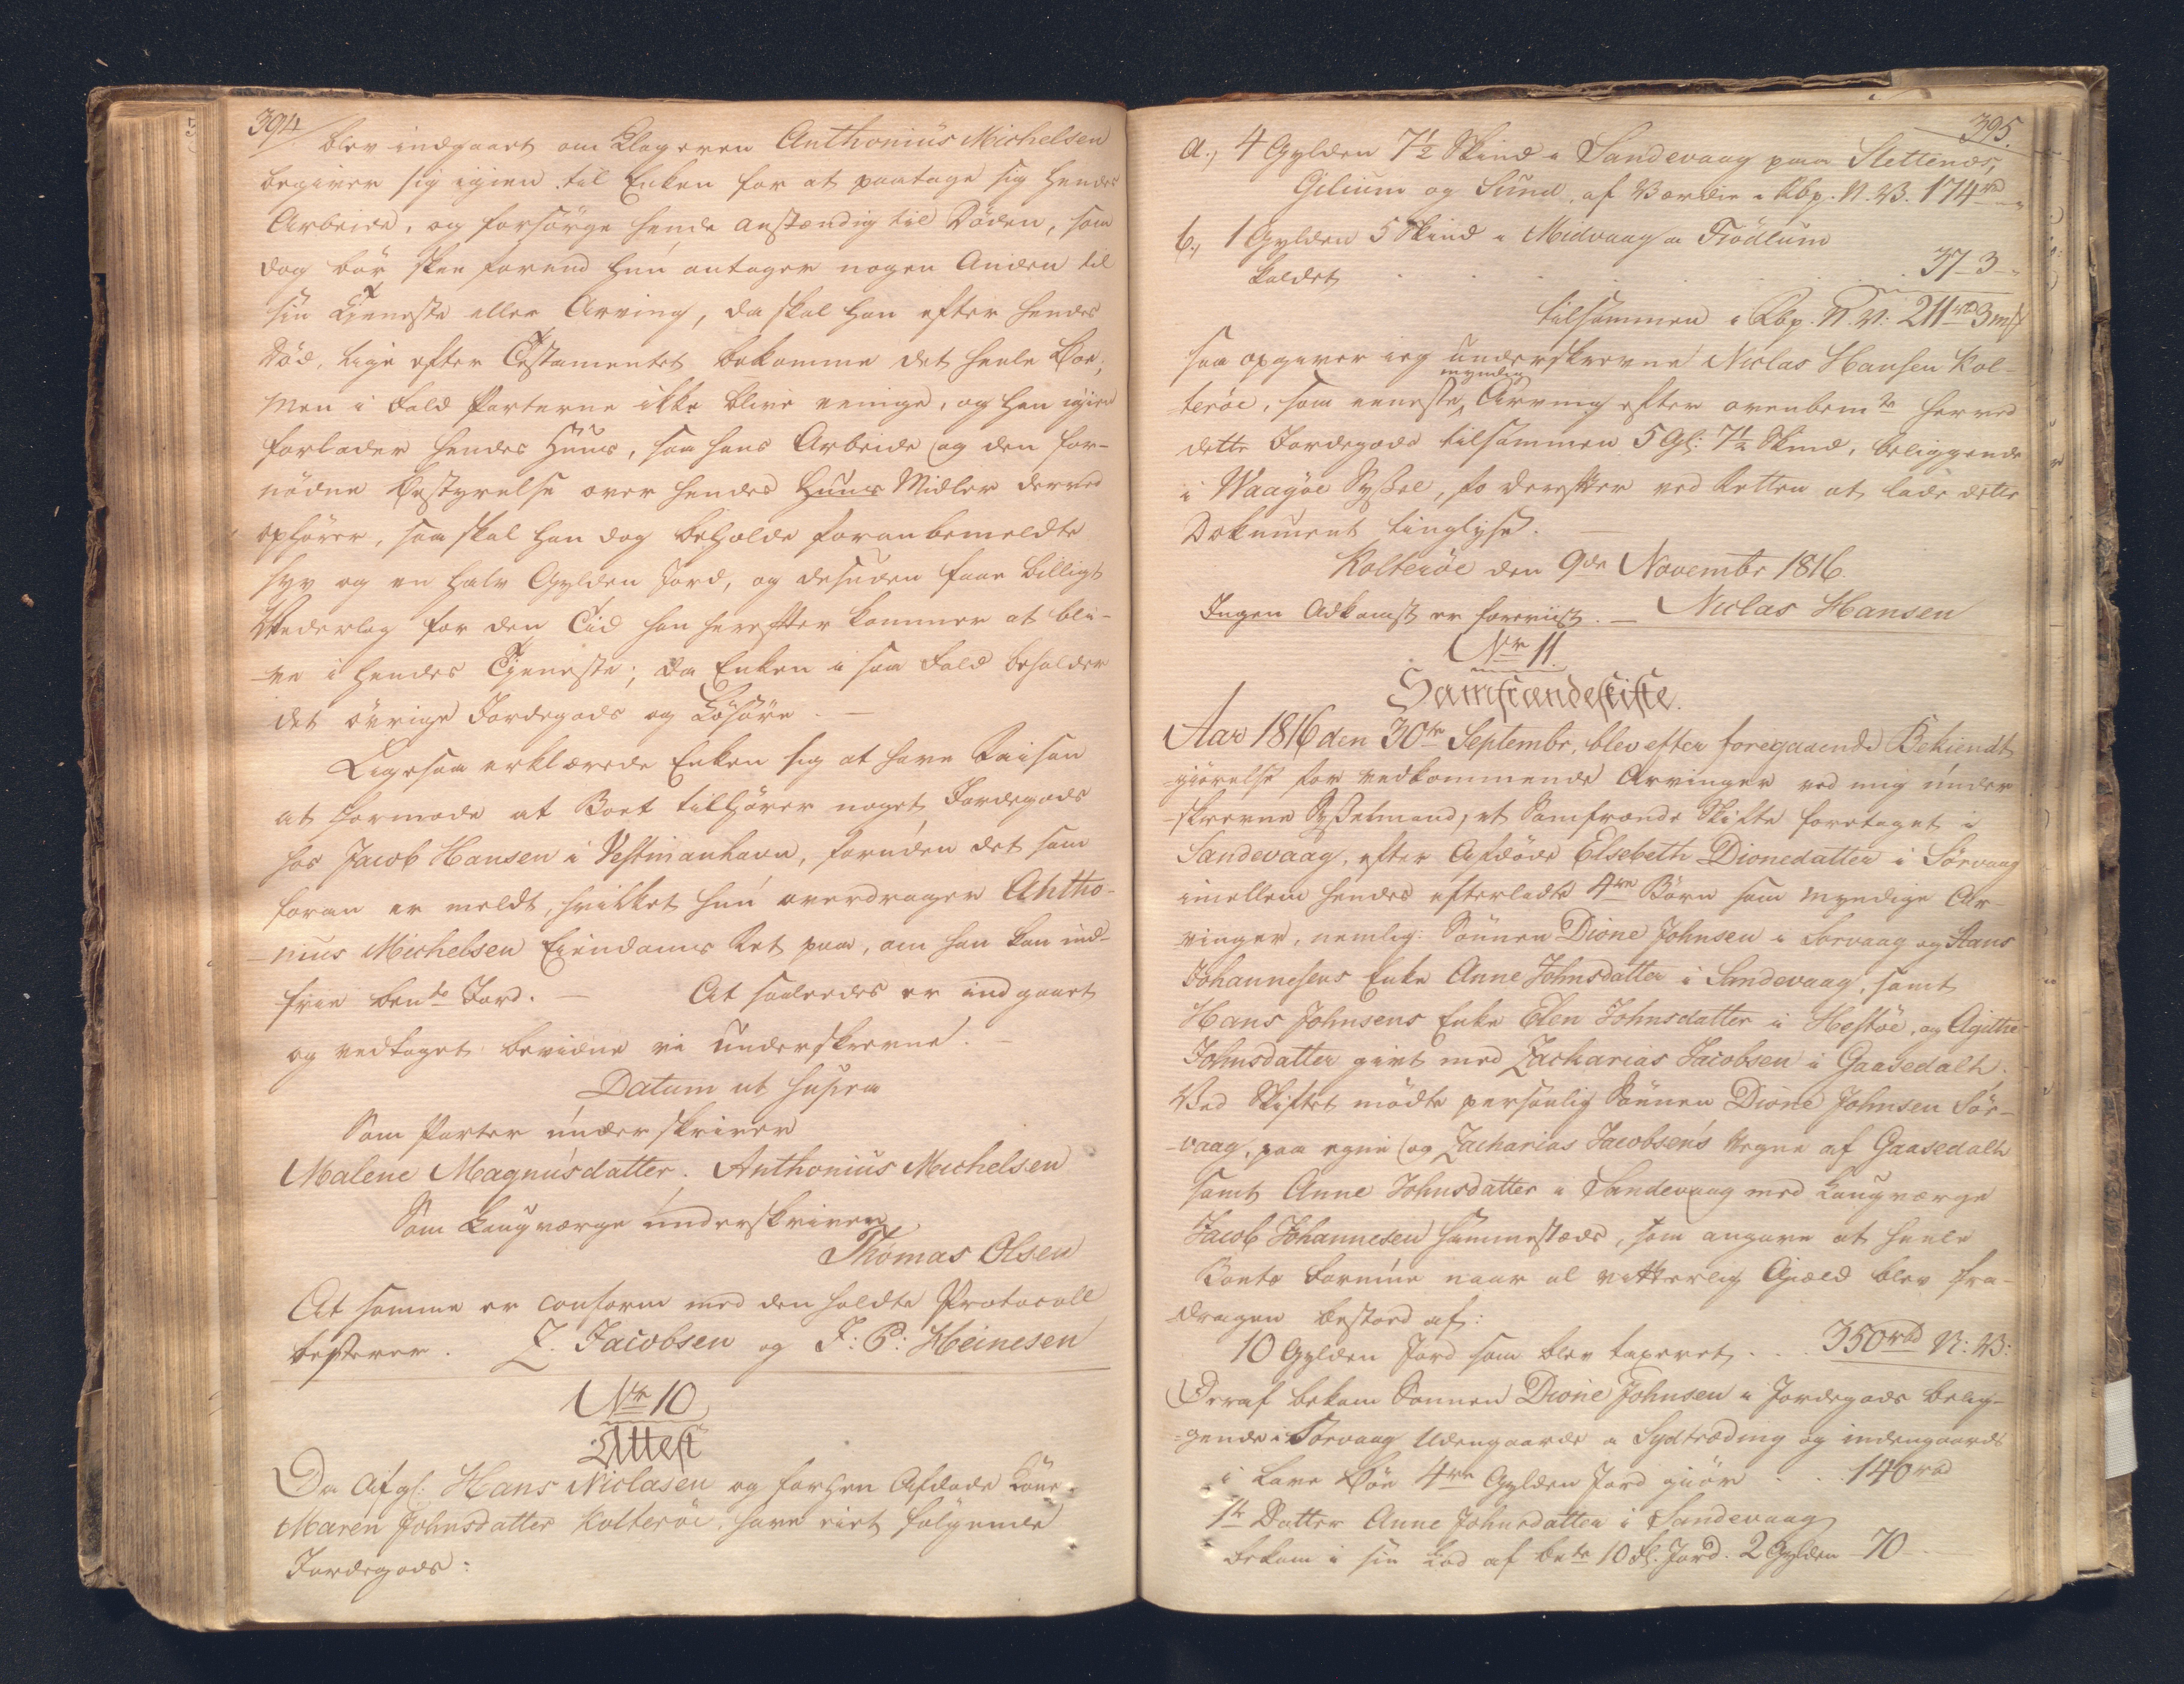 394
blev indgaaet om Klageren Anthonius Michelsen
begiver sig igien til Enken for at paatage sig hendes
Arbeide, og forsörge hende anstændig til Döden, som
dog bör skee forend hun antager nogen Anden til
sin Tjeneste eller Arving, da skal han efter hendes
Död, lige efter Testamentet bekomme det heele Boe;
Men i Fald Parterne ikke blive eenige, og han igien
forlader hendes Huus, saa hans Arbeide og den for-
nödne Bestyrelse over hendes Huus Midler derved
ophörer, saa skal han dog beholde foranbemeldte
syv og en halv Gylden Jord, og desuden faae billigt
Vederlag for den Tid han herefter kommer at bli-
-ve i hendes Tjeneste; da Enken i saa Fald beholder
det övrige Jordegods og Lösöre. —
Ligesaa erklærede Enken sig at have Raison
at formode at Boet tilhörer noget Jordegods
hos Jacob Hansen i Vestmanhavn, foruden det som
foran er meldt, hvilket hun overdrager Antho-
-nius Michelsen Eiendoms Ret paa, om han kan ind-
frie bemte Jord. — At saaledes er indgaaet
og vedtaget bevidne vi underskrevne. —
Datum ut supra
Som Parter underskriver
Malene Magnusdatter. Anthonius Michelsen
Som Laugværge underskriver,
Thomas Olsen
At samme er conform med den holdte Protocoll
testerer. Z. Jacobsen og J: P: Heinesen
No 10
Attest
Da Afgl: Hans Niclasen og forhen Afdöde Kone
Maren Johnsdatter Kolteröe, have eiet fölgende
Jordegods:
395.
a., 4 Gylden 7½ Skind i Sandevaag paa Slettenes,
Gilium og Sund, af Værdie i Rbp. N. V. 174 rd -„
b., 1 Gylden 5 Skind i Midvaag a Trödlum
kaldet . . . . 37 - 3 -„
tilsammen i Rbp. N. V: 211 rd 3 mk
saa opgiver ieg underskrevne Niclas Hansen Kol-
teröe, som eeneste myndig Arving efter ovenbemte herved
dette Jordegods tilsammen 5 Gl: 7½ Skind, beliggende
i Waagöe Syssel, for derefter ved Retten at lade dette
Dokument tinglyse. —
Kolteröe den 9de Novembr 1816.
Ingen Adkomst er foreviist. — Niclas Hansen
No 11
Samfrændeskifte.
Aar 1816 den 30te Septembr, blev efter foregaaende Bekiendt
-giörelse for vedkommende Arvinger ved mig under
-skrevne Sysselmand, et Samfrænde Skifte foretaget i
Sandevaag, efter Afdöde Elsebeth Dionedatter i Sörvaag
imellem hendes efterladte 4re Börn som myndige Ar-
vinger, nemlig: Sönnen Dione Johnsen i Sörvaag og Hans
Johannesens Enke Anne Johnsdatter i Sandevaag, samt
Hans Johnsens Enke Elen Johnsdatter i Hestöe, og Agithe
Johnsdatter givt med Zacharias Jacobsen i Gaasedalh.
Ved Skiftet mödte personlig Sönnen Dione Johnsen Sör-
-vaag, paa egne og Zacharias Jacobsen's Vegne af Gaasedalh
samt Anne Johnsdatter i Sandevaag med Laugværge
Jacob Johannesen sammesteds, som angave at heele
Boets Formue naar al vitterlig Gjæld blev fra-
dragen bestod af:
10 Gylden Jord som blev taxeret . . . 350 rbd N: V:
Deraf bekom Sönnen Dione Johnsen i Jordegods belig-
-gende i Sörvaag Udengaards a Sydtræding og indengaards
i Lave Böe 4re Gylden Jord giör . . 140 rbd
1te Datter Anne Johnsdatter i Sandevaag
bekom i sin Lod af bete 10 Gl. Jord. 2 Gylden - 70 -